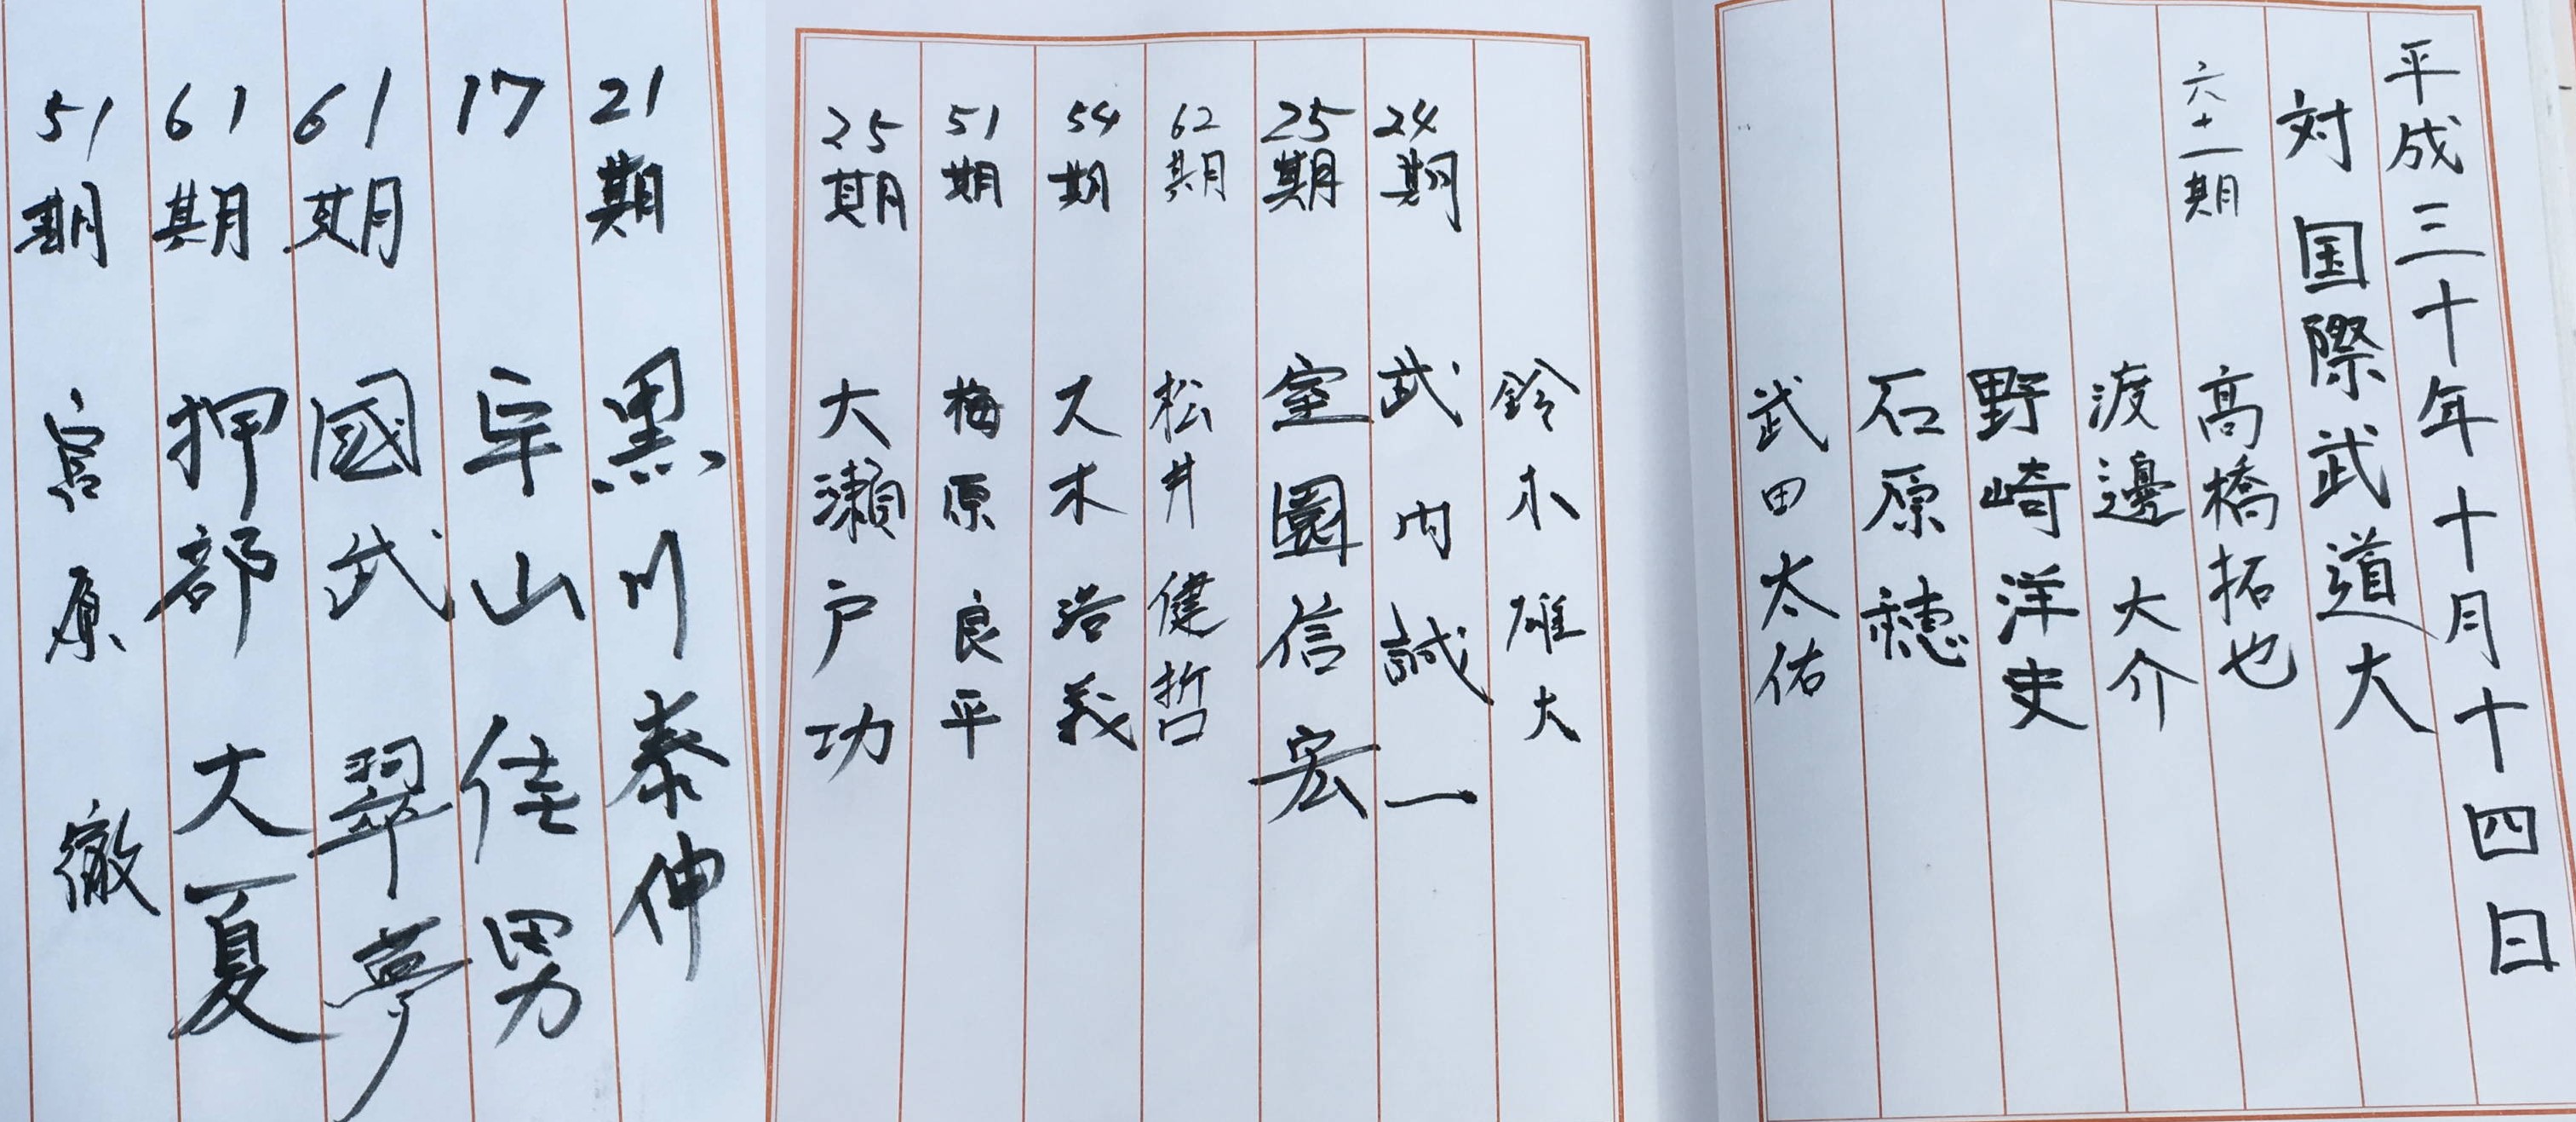 平成三十年十月十四日
対国際武道大
六十一期 高橋拓也
渡邊大介
野崎洋史
石原穂
武田太佑
鈴木雄大
24期 武内誠一
25期 室園信宏
62期 松井健哲
54期 久木浩義
51期 梅原良平
25期 大瀬戸功
21期 黒川泰伸
17 宇山佳男
61期 國武翠夢
61期 押部大夏
51期 宮原徹